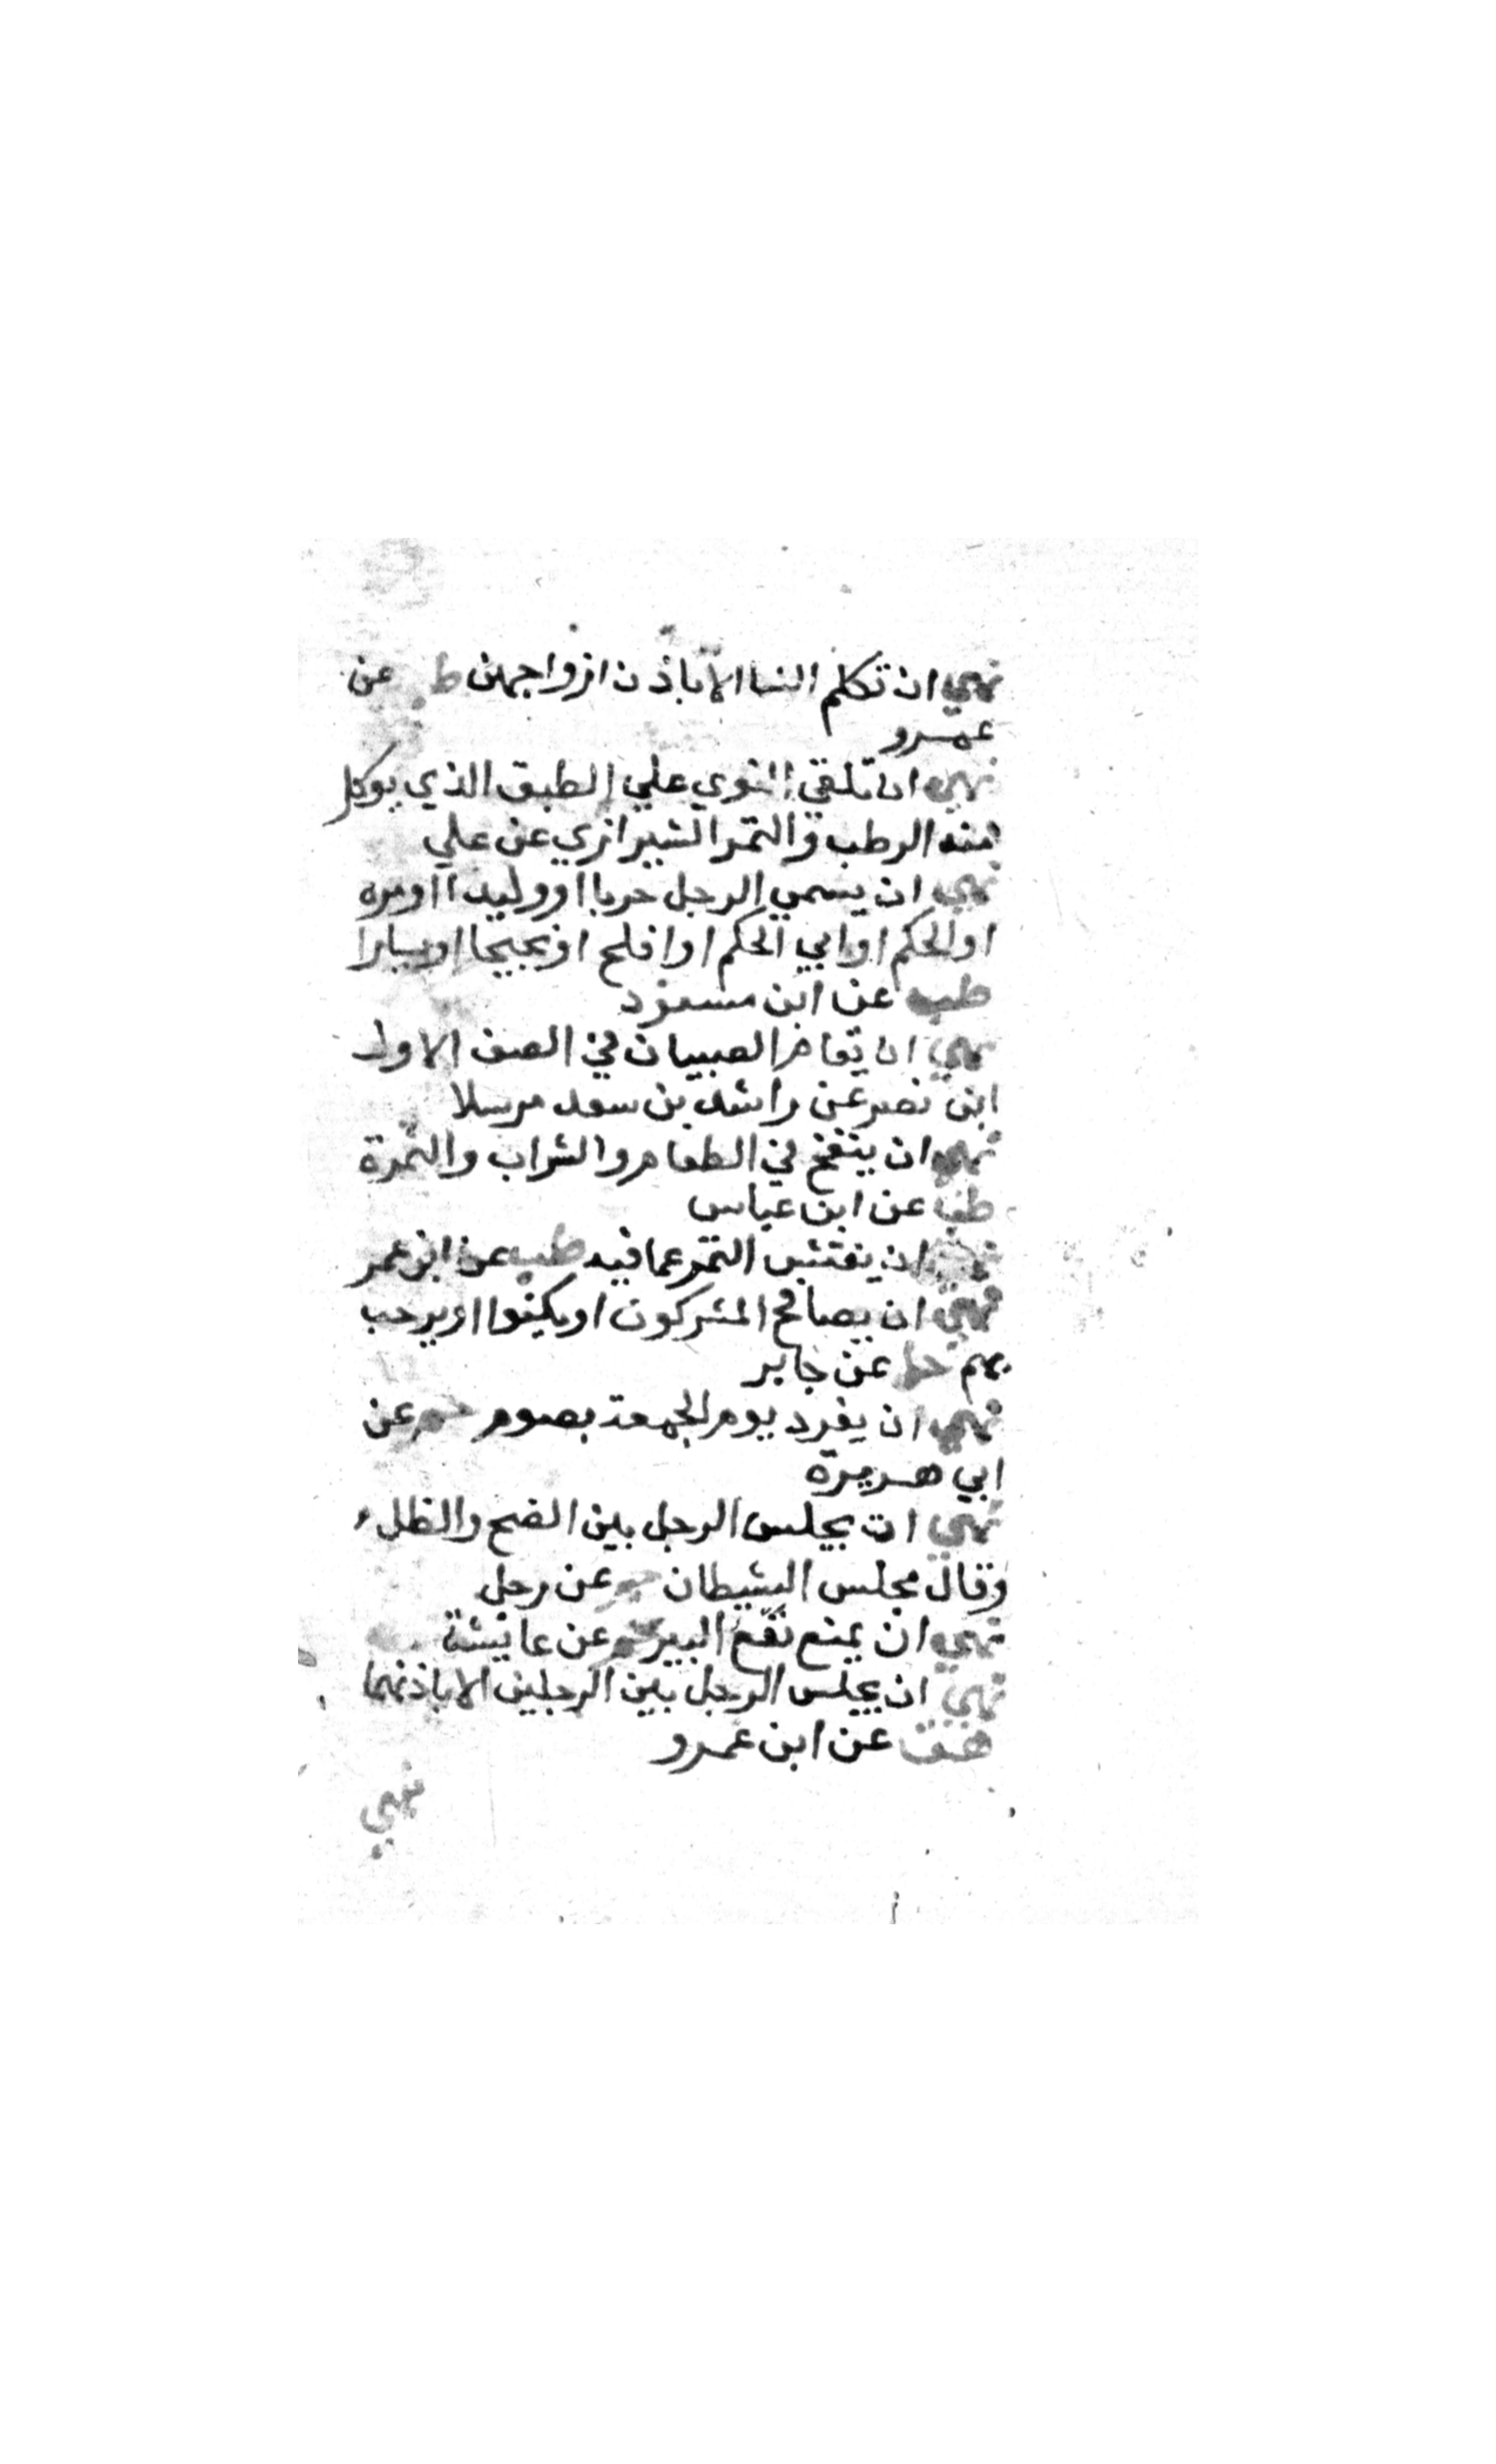 نهي ان تكلم النسا الا باذن ازواجهن طب عن
عمرو
نهي ان تلقي النوي علي الطبق الذي يوكل
منه الرطب والتمر الشيرازي عن علي
نهي ان يسمي الرجل حربا او وليدا او مره
او الحكم او ابي الحكم او افلح او نجيحا او يسارا
طب عن ابن مسعود
نهي ان يقام الصبيان في الصف الاول
ابن نصر عن راشد بن سعد مرسلا
نهي ان ينفخ في الطعام والشراب والثمرة
طب عن ابن عباس
نهي ان يفتش التمر عما فيه طب عن ابن عمر
نهي ان يصافح المشركون او يكنوا او يرحب
بهم حل عن جابر
نهي ان يفرد يوم الجمعة بصوم حم عن
ابي هريرة
نهي ان يجلس الرجل بين الضح والظل
وقال مجلس الشيطان حم عن رجل
نهي ان يمنع نقع البير حم عن عايشة
نهي ان يجلس الرجل بين الرجلين الا باذنهما
هق عن ابن عمرو
نهي